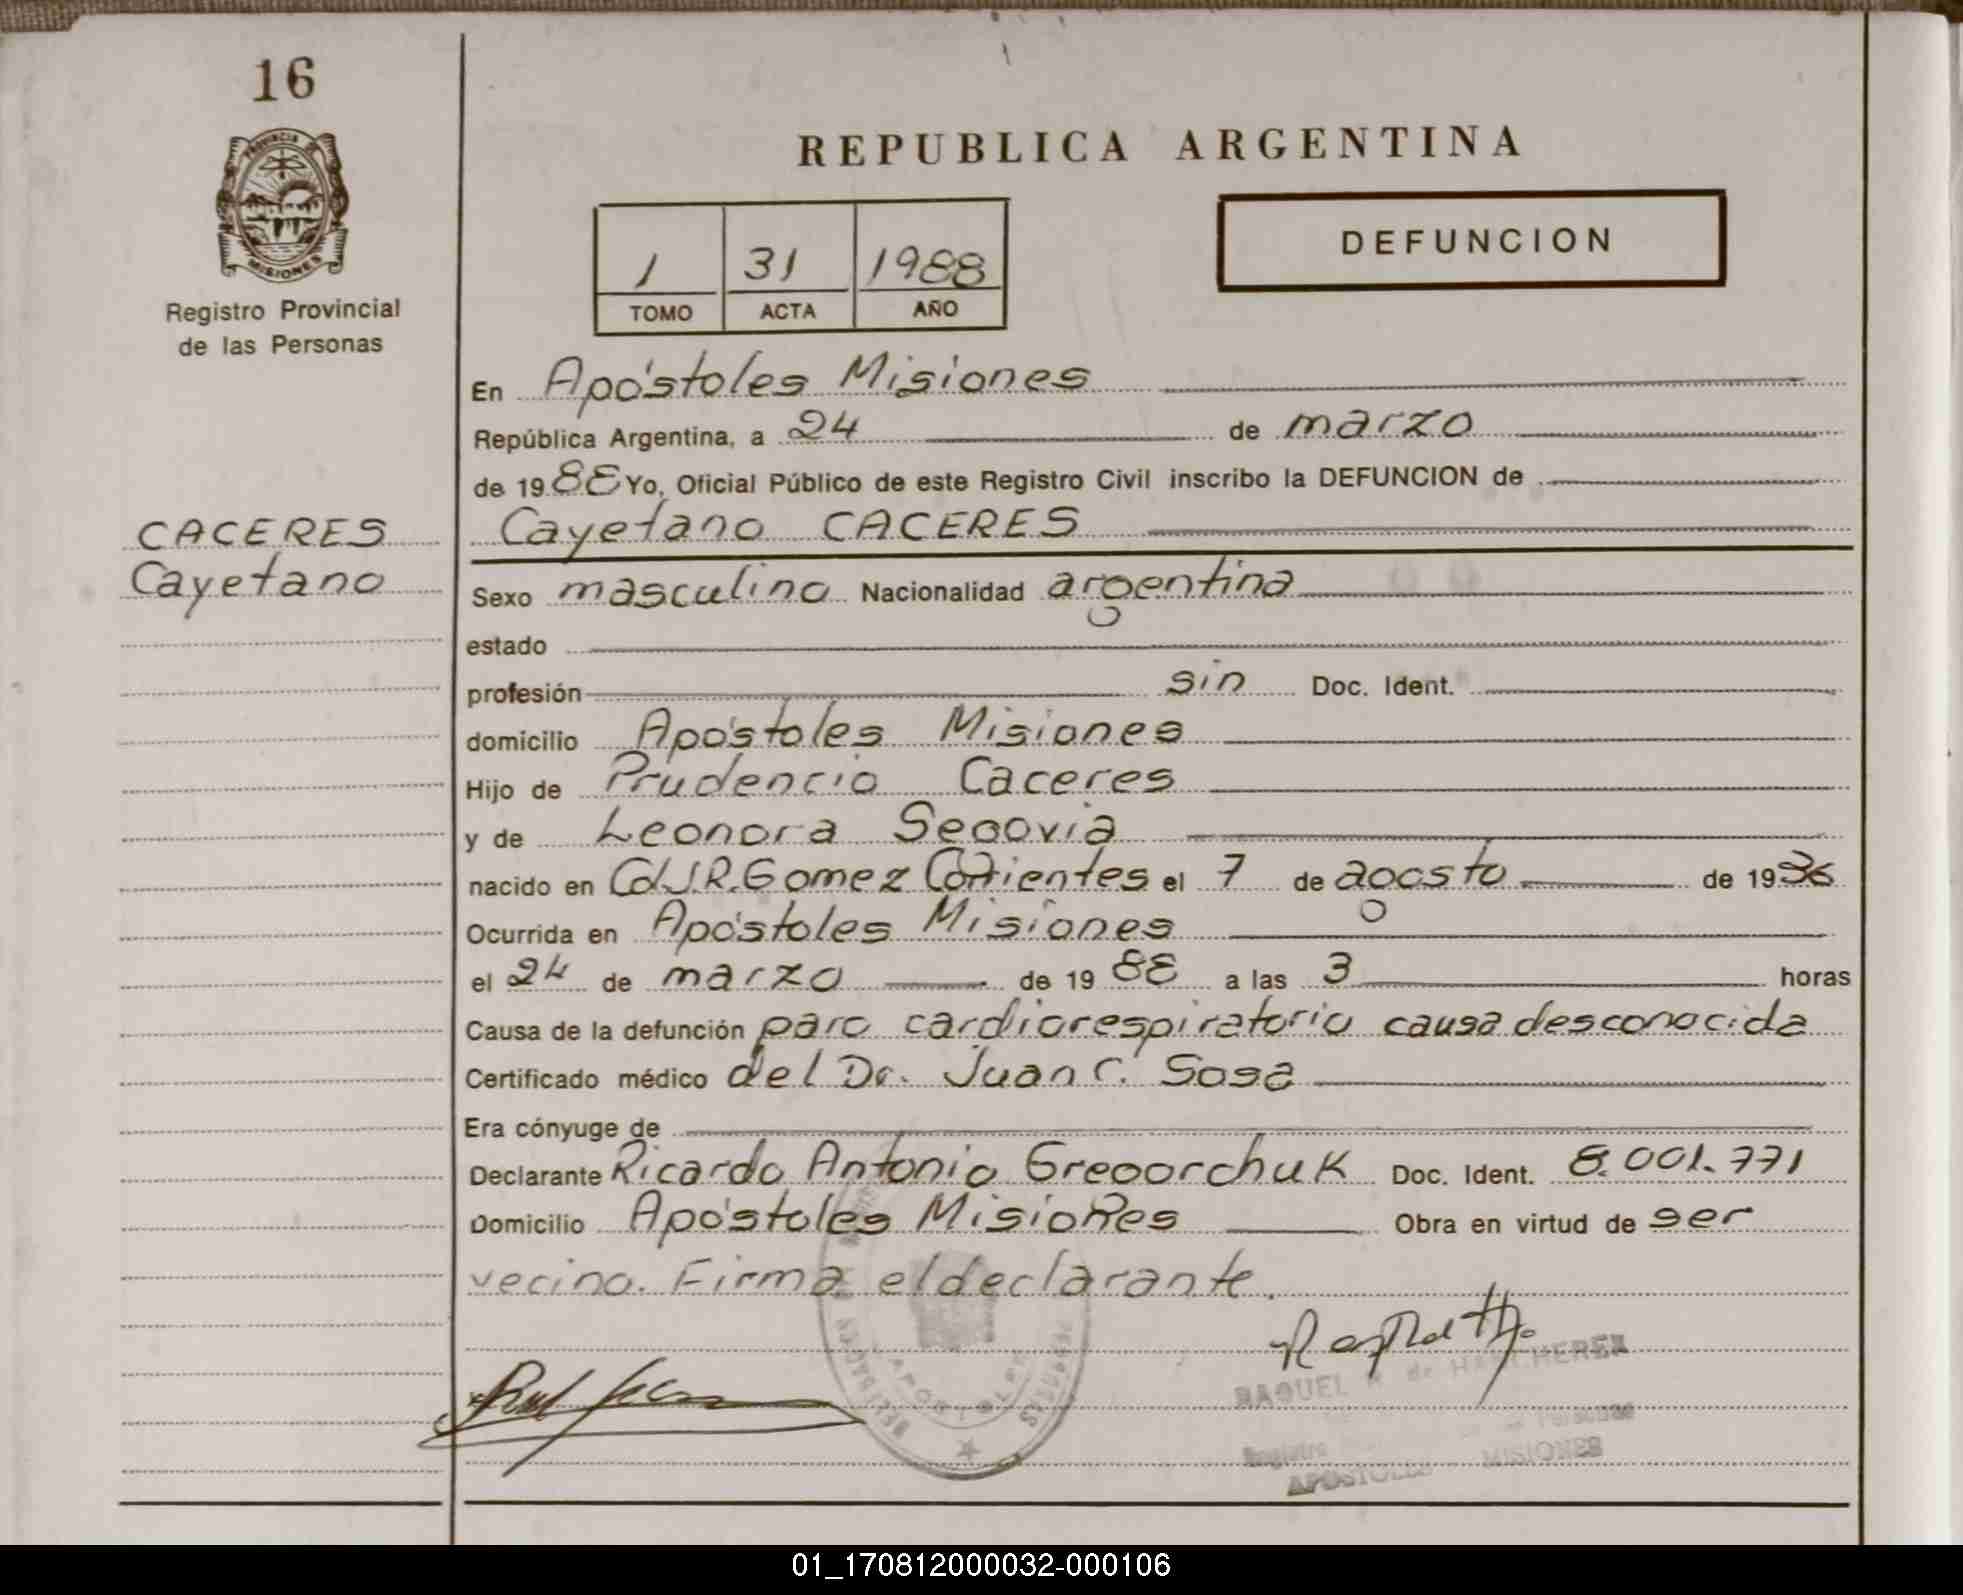 16
PROVINCIA DE
MISIONES
Registro Provincial
de las Personas
REPUBLICA ARGENTINA
DEFUNCION
1 31 1988
TOMO ACTA AÑO
En Apóstoles Misiones
República Argentina, a 24 de marzo
de 1988 Yo, Oficial Público de este Registro Civil inscribo la DEFUNCION de
CACERES
Cayetano
Cayetano CACERES
Sexo masculino Nacionalidad argentina
estado
profesión sin Doc. Ident.
domicilio Apóstoles Misiones
Hijo de Prudencio Caceres
y de Leonora Segovia
nacido en Col J.R. Gomez Corrientes el 7 de agosto de 1936
Ocurrida en Apóstoles Misiones
el 24 de marzo de 1988 a las 3 horas
Causa de la defunción paro cardiorespiratorio causa desconocida
Certificado médico del Dr. Juan C. Sosa
Era cónyuge de
Declarante Ricardo Antonio Gregorchuk Doc. Ident. 8.001.771
Domicilio Apóstoles Misiones Obra en virtud de ser
vecino. Firma el declarante.
RAQUEL de
Registro Personas
APOSTOLES MISIONES
01_170812000032-000106